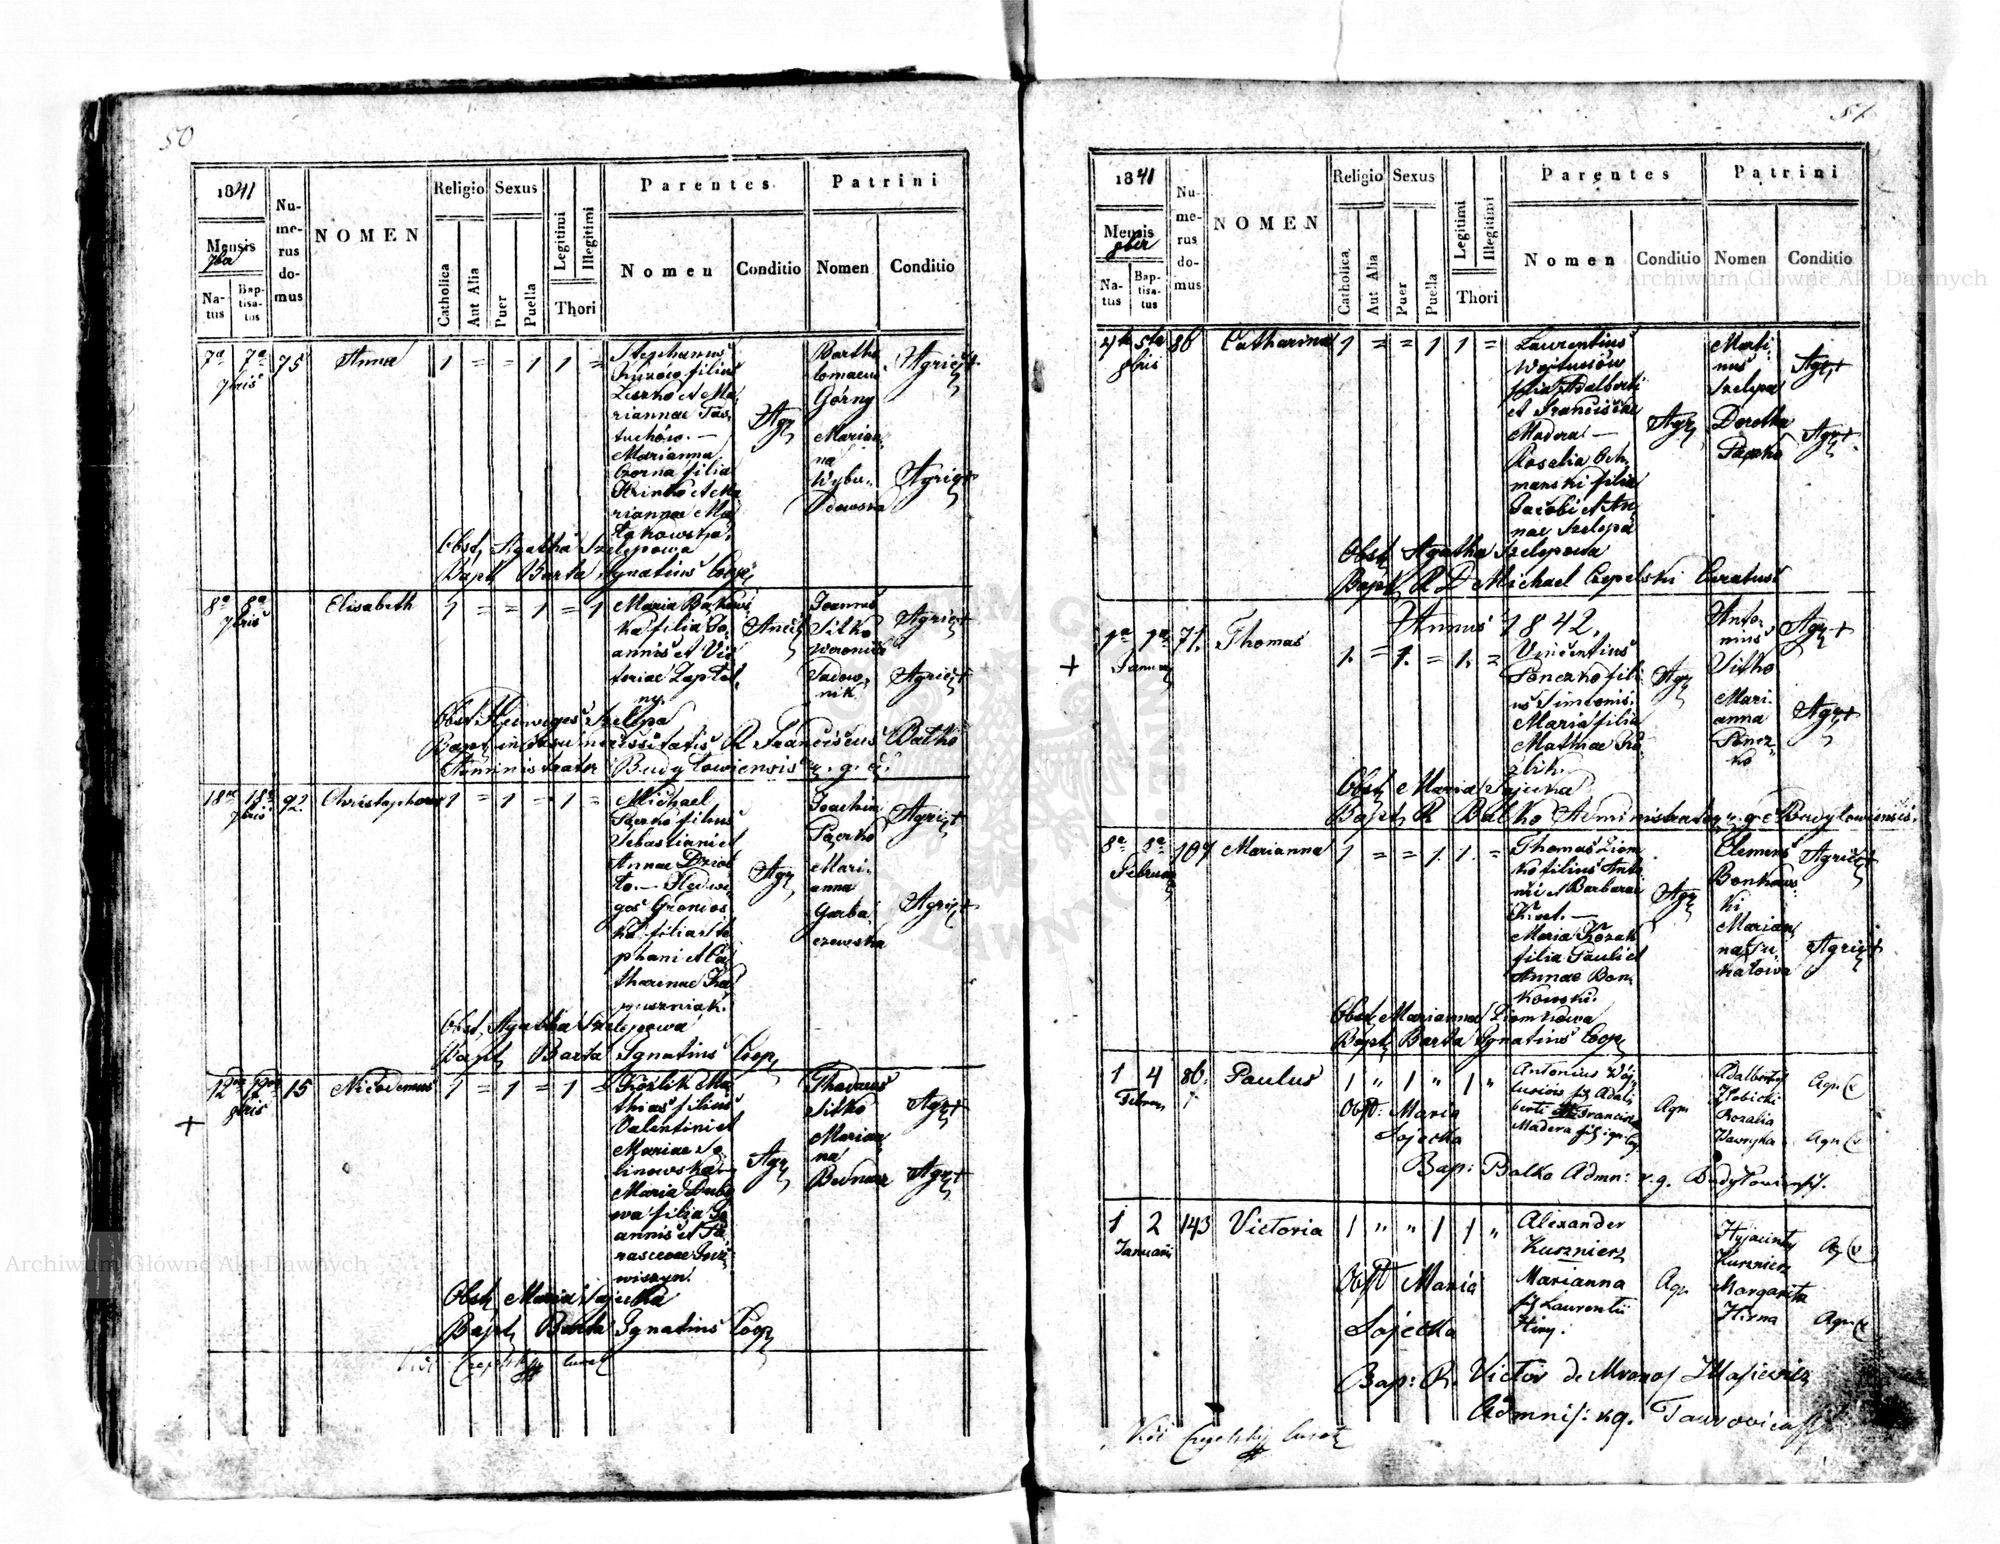 50
1841
Mensis
7bri
Na-
tus
Bap-
tisa-
tus
Nu-
me-
rus
do-
mus
NOMEN
Religio
Catholica
Aut Alia
Sexus
Puer
Puella
Legitimi
Illegitimi
Thori
Parentes
Nomen
Conditio
Patrini
Nomen
Conditio
7a 7a
7bris
75
Anna
1 = = 1 1 =
Stephanus
filius
Leszko et Ma-
riannae Pas-
tuchów. —
Marianna
Gorna filia
Hrinko et Ma-
riannae
Agr
Bartho
lomaeus
Górny
Marian
na
Wybu-
dowska
Agric +
Agric +
Obst Agatha Szelepowa
Bapt Barta Ignatius Coop
8a 8a
7bris
Elisabeth
1 = = 1 = 1
Maria
ka filia Jo-
annis et Vic-
toriae
ny.
Ancil
Joannes
Sitko
Weronica
Sadow-
nik
Agric +
Agric +
Obst Hedwiges Szelepa
Bapt in casu necessitatis R Franciscus Balko
Administrator Budylowiensis r. g. c.
18a 18a
7bris
92.
Christophorus
1 = 1 = 1 =
Michael
Paczko filius
Sebastiani et
Annae
to. — Hedwi
ges
ka filia Ste
phani et Ca
tharinae Ka
puszniak.
Agr
Joachim
Paczko
Mari-
anna
Garba
czewska
Agric +
Agric +
Obst, Agatha Szelepowa
Bapt Barta Ignatius Coop
+
12a 12a
8bris
15
Nicodemus
1 = 1 = 1 =
Kozlik Ma
thias filius
Valentini et
Mariae Sa
linowska
Maria Dubo
wa filia Jo
annis et Pa
rascevae
wiszyn
Agr
Thadaeus
Sitko
Marian
na
Bednarz
Agr +
Agr +
Obst Maria Sajecka
Bapt Barta Ignatius Coop
Vidi Czepelskÿ curat
51
1841
Mensis
8ber
Na-
tus
Bap-
tisa-
tus
Nu-
me-
rus
do-
mus
NOMEN
Religio
Catholica
Aut Alia
Sexus
Puer
Puella
Legitimi
Illegitimi
Thori
Parentes
Nomen
Conditio
Patrini
Nomen
Conditio
4ta 5ta
8bris
86
Catharina
1 = = 1 1 =
Laurentius
Wojtusiów
filius Adalberti
et Franciscae
Madera —
Rosalia Och
manski filia
Jacobi et An
nae Szelepa
Agr
Marti-
nus
Szelepa
Dorothea
Paczko
Agr +
Agr +
Obst Agatha Szelepowa
Bapt R D Michael Czepelski Curatus
Annus 1842.
+
1a 1a
Januar
71.
Thomas
1. = 1. = 1. =
Vincentius
Ponczko fili
us Simeonis.
Maria filia
Mathiae Ko
zlik.
Agr
Anto-
nius
Sitko
Mari-
anna
Poncz-
ko
Agr +
Agr +
Obst Maria Sajecka
Bapt R Balko Administrator r. g. c Budylowiensis.
8a 8a
Februar
107
Marianna
1 = = 1. 1. =
Thomas Ziom
ko filius Anto
nii et Barbarae
Kret. —
Maria Kozak
filia Pauli et
Annae Bon-
kowski.
Agr
Clemens
Bonkaws
ki
Marian
na
Agric +
Agric +
Obst Marianna Ziomkowa
Bapt Barta Ignatius Coop
1 4
Februar
86.
Paulus
1 " 1 " 1 "
Antonius Woj-
tusiów fil Adal
berti et Francisca
Madera
Agr
Adalbertus
Zlobicki
Rozalia
Wawryka
Agr (x
Agr (x
Obst: Maria
Sojecka
Bap: Balko Admn: r. g. Budylowiensis.
1 2
Januarii
143
Victoria
1 " " 1 1 "
Alexander
Kusznierz
Marianna
fil Laurentii
Hirny.
Agr
Hyjacintus
Kusznierz
Margareta
Hirna
Ag (x)
Agr (x
Obst Maria
Sojecka
Bap: R. Victor de Mronos Ilasiewicz
Admnis: r g.
Vidi Czepelskÿ curat
Archiwum Główne Akt Dawnych
Archiwum Główne Akt Dawnych